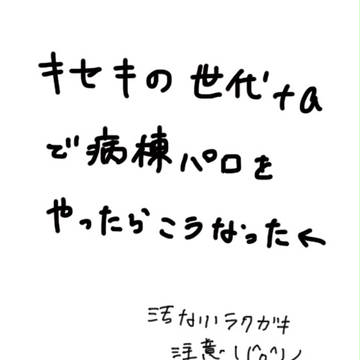 キセキの世代+α
で病棟パロを
やったらこうなった←
汚ないラクガキ
注意